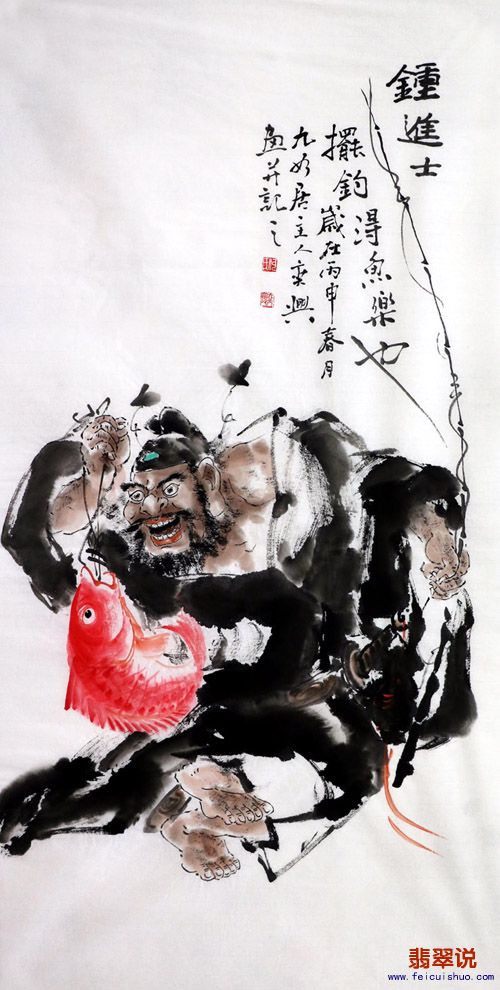 鍾進士
擺釣淂魚樂也
歲在丙申春月
九如居主人奕興
畫并記之
翡翠说
www.feicuishuo.com